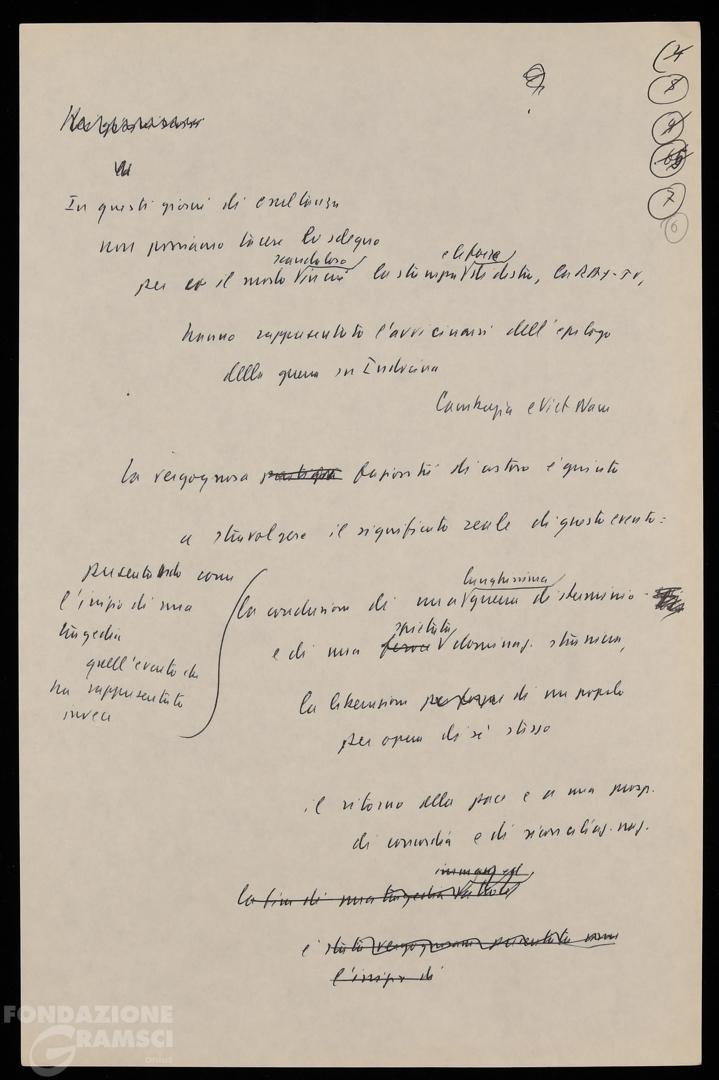 4
8
9
7
6
In questi giorni di esultanza
non possiamo tacere lo sdegno
scandaloso
per il modo in cui la stampa di destra, la RAI-TV,
hanno rappresentato l'avvicinarsi dell'epilogo
della guerra in Indocina
Cambogia e Viet Nam
La vergognosa faziosità di costoro è giunta
a stravolgere il significato reale di questo evento:
presentando come
l'inizio di una
tragedia
quell'evento che
ha rappresentato
invece
lunghissima
la conclusione di una guerra di sterminio
spietata
e di una feroce dominaz. straniera,
la liberazione di un popolo
per opera di sé stesso
il ritorno alla pace e a una prosp.
di concordia e di riconciliaz. naz.
immagine
la fine di una tragedia
è stata vergognosamente presentata come
l'inizio di
FONDAZIONE
GRAMSCI
onlus